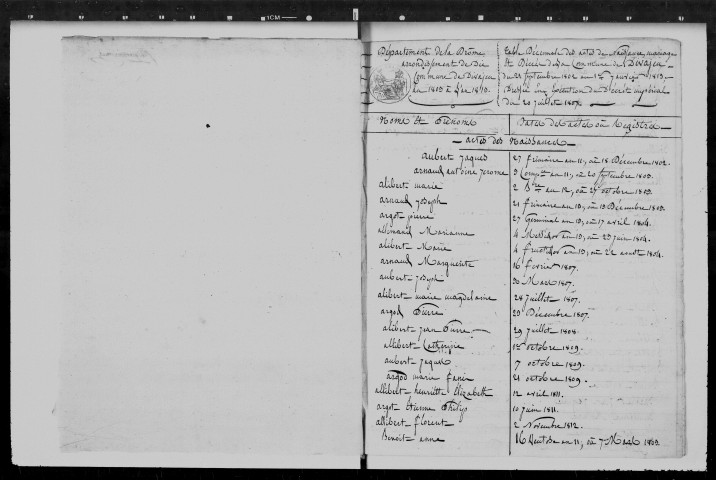 Département de la Drôme
arrondissement de Die
Commune de Divajeu
an 1803 à l'an 1813.
Table Décennale des actes de naissance, mariage
Et Décès de la Commune de Divajeu
du 24 Septembre 1802 au 1er janvier 1813,
dressée en Exécution du Décret impérial
du 20 juillet 1807.
Noms Et Prénoms
Dates des actes au Registre
actes des Naissances
aubert jaques 27 frimaire an 11, ou 18 Décembre 1802.
arnaud antoine jerome 3 Compre an 11, ou 20 septembre 1803.
alibert marie 2 Bre an 12, ou 27 octobre 1803.
arnaud joseph 21 frimaire an 12, ou 13 Décembre 1803.
argot pierre 27 Germinal an 12, ou 17 avril 1804.
allemand Marianne 4 Messidor an 12, ou 23 juin 1804.
alibert Marie 4 fructidor an 12, ou 22 aout 1804.
arnaud Marguerite 16 fevrier 1807.
aubert joseph 30 Mars 1807.
alibert marie magdelaine 28 juillet 1807.
argod Pierre 29 Décembre 1807.
alibert jean Pierre 29 juillet 1808.
allibert Catherine 1er octobre 1809.
aubert jaques 7 octobre 1809.
argod marie fanie 21 octobre 1809.
allibert henriette Elizabeth 12 avril 1811.
argot Etienne Philip 10 juin 1811.
allibert florent 2 Novembre 1812.
Benoit anne 16 Ventose an 11, ou 7 Mars 1803.